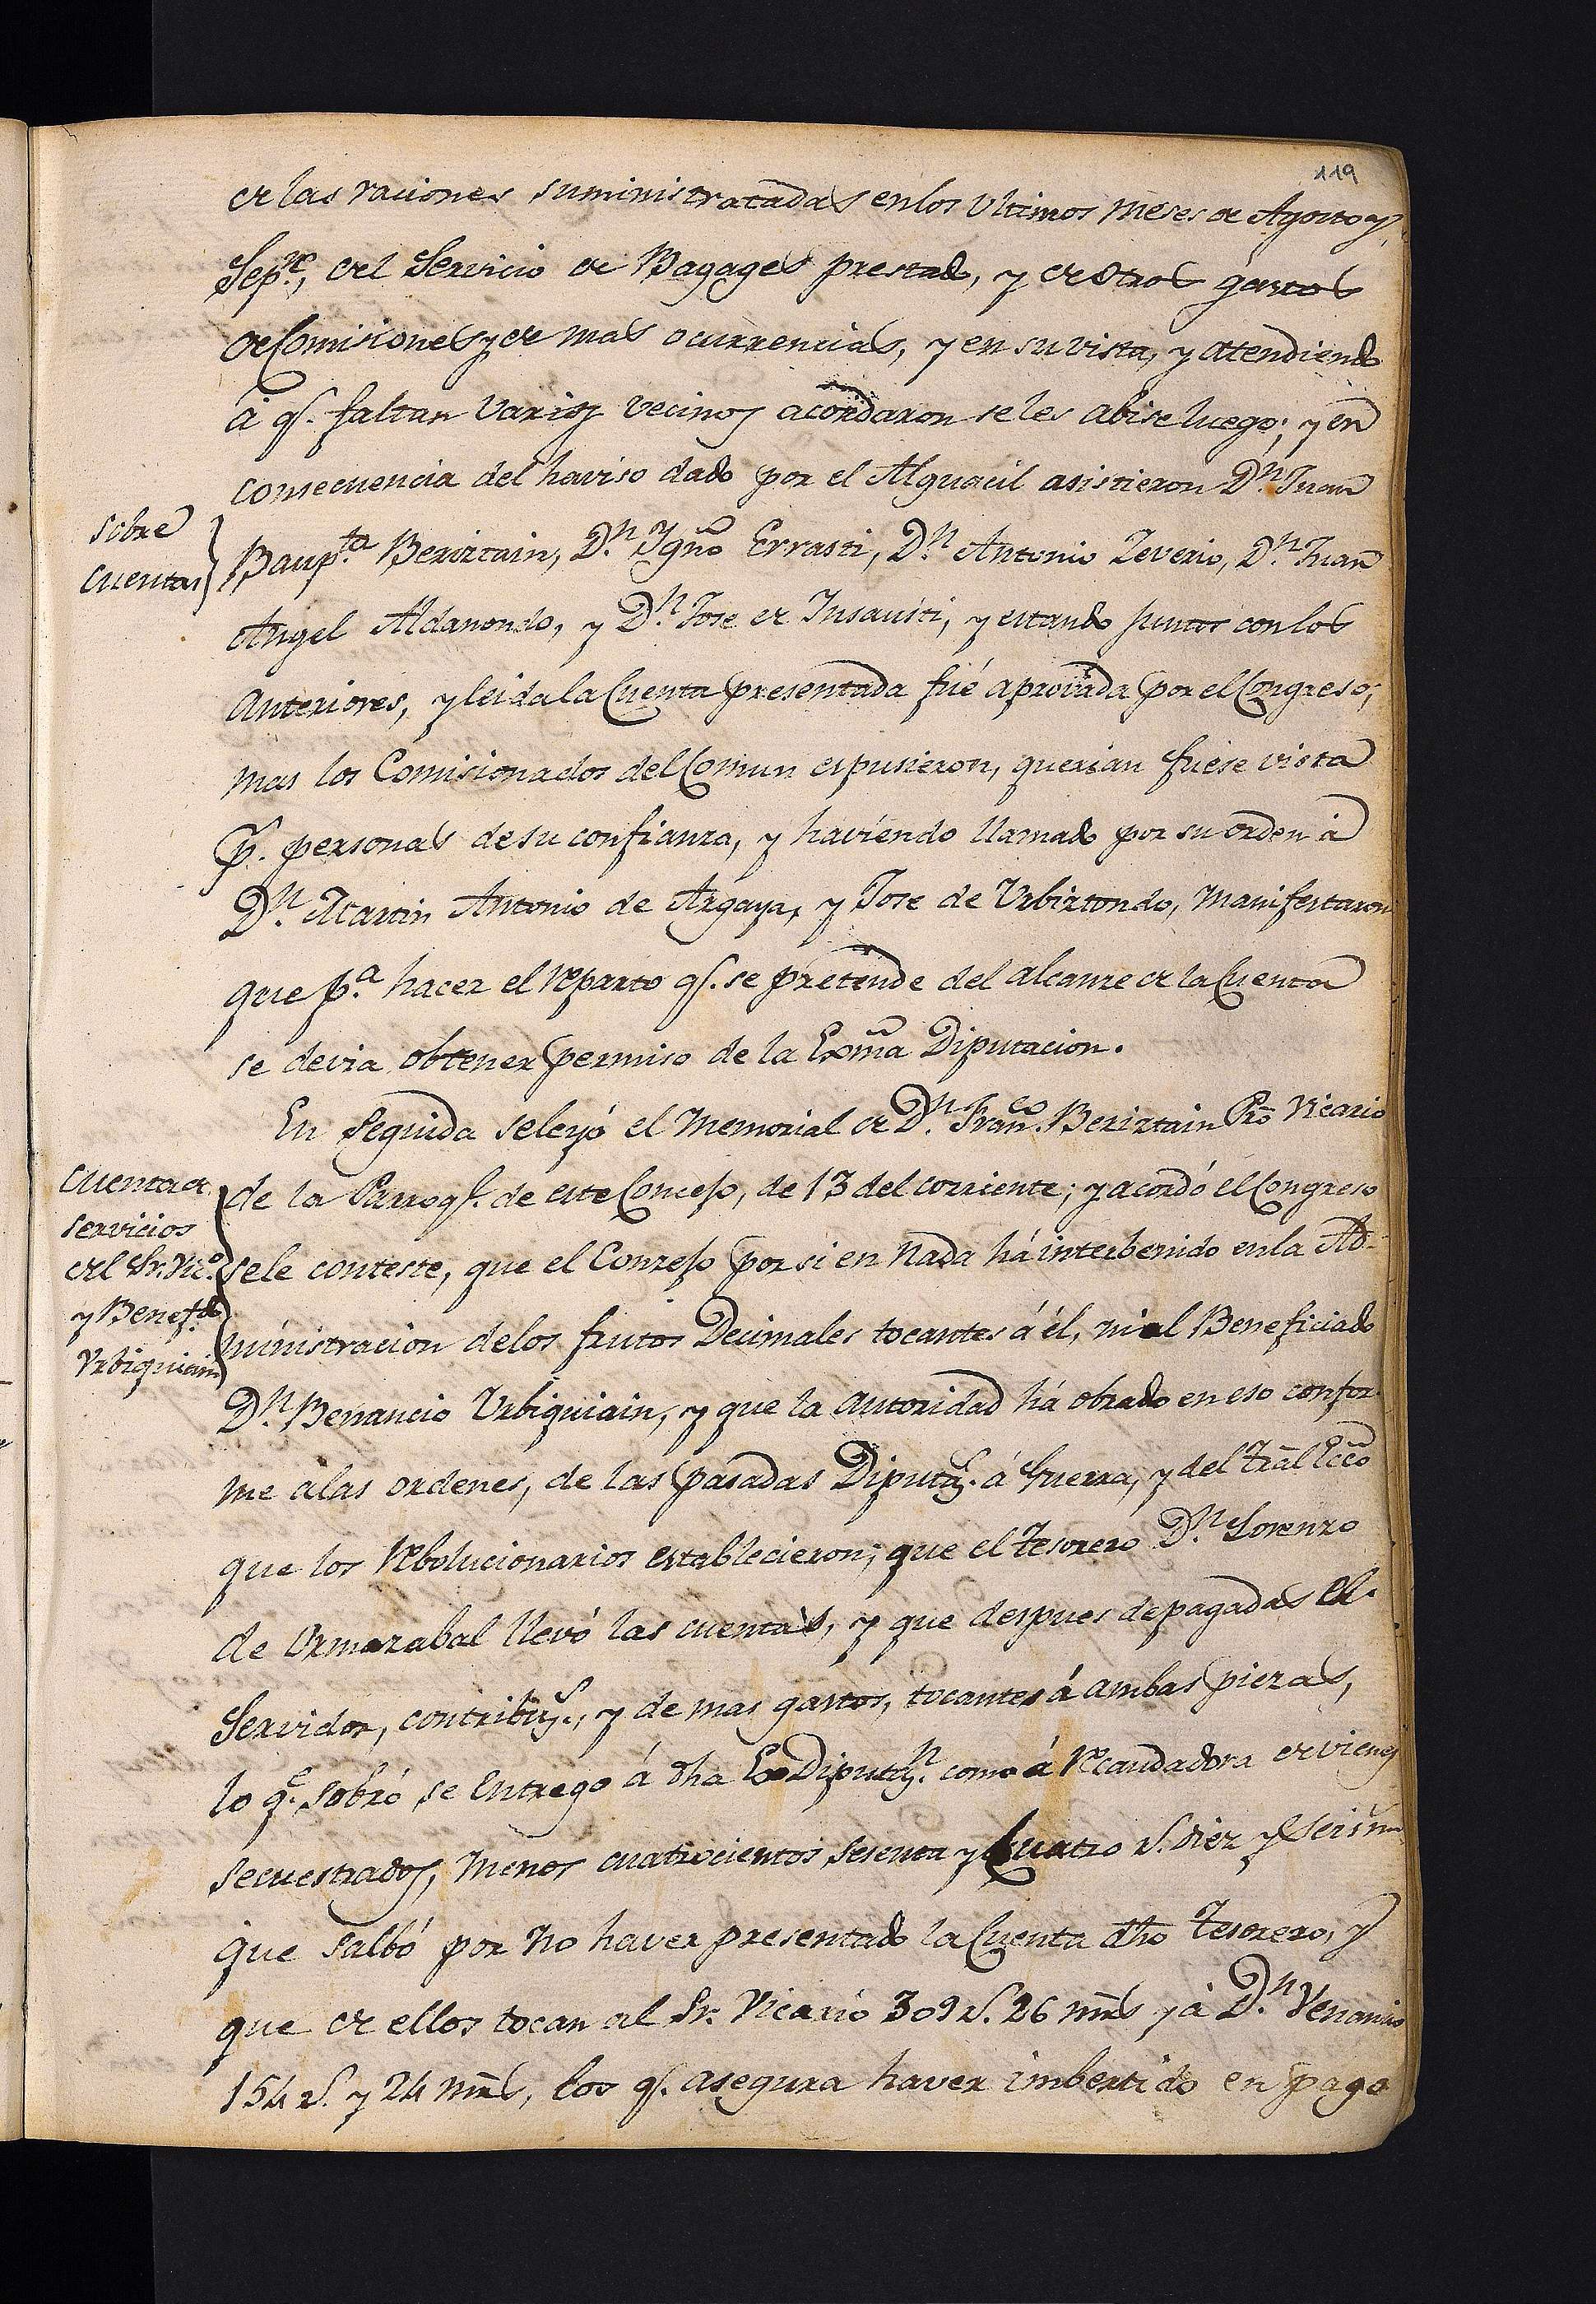 119
de las raciones suministratadas en los Ultimos meses de Agosto y
Sep.re, del Servicio de Bagages prestado, y de otros gastos
de Comisiones y de mas ocurrencias, y en su vista, y atendiendo
á q.e faltan varios vecinos acordaron se les abise luego; y en
consecuencia del haviso dado por el Alguacil asistieron D.n Juan
sobre
cuentas
Baup.ta Beriztain, D.n Ygño Errasti, D.n Antonio Zeverio, D.n Juan
Angel Aldanondo, y D.n Jose de Insausti, y estando juntos con los
anteriores, y leida la Cuenta presentada fué aprovada por el Congreso,
mas los Comisionados del Comun espusieron, querian fuese vista
p.r personas de su confianza, y haviendo llamado por su orden á
D.n Martin Antonio de Argaya, y Jose de Urbiztondo, manifestaron
que p.a hacer el reparto q.e se pretende del alcanze de la Cuenta
se devia obtener permiso de la Exma Diputacion.
En Seguida se leyó el Memorial de D.n Fran.co Beriztain Pro Vicario
cuenta de
servicios
del Sr. Vic.o
y Benef.do
Urbiquiain
de la Parroq.l de este Concejo, de 13 del corriente; y acordó el Congreso
se le conteste, que el Conzejo por si en nada há interbenido en la Ad-
ministracion de los frutos Decimales tocantes á él, ni al Beneficiado
D.n Benancio Urbiquiain, y que la autoridad há obrado en eso confor-
me a las ordenes, de las pasadas Diput.s á Guerra, y del Tral Ecco
que los Rebolucionarios establecieron; que el tesorero D.n Lorenzo
de Ormazabal llevó las cuentas, y que despues de pagadas el
Servidor, contribu.s, y de mas gastos, tocantes á ambas piezas,
lo q.e sobró se entregó á dha Ex Diput.n como á Recaudadora de vienes
secuestrados, menos cuatrocientos sesenta y Cuatro r.s diez y seis m.s
que salbó por no haver presentado la Cuenta dho Tesorero, y
que de ellos tocan al Sr. Vicario 309 r.s 26 mrs y á D.n Venancio
154 r.s y 24 mrs, los q.e asegura haver imbertido en pago